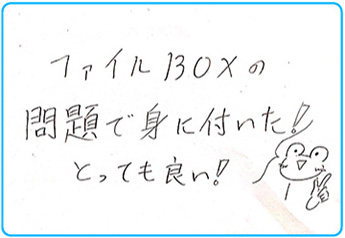 ファイルBOXの
問題で身に付いた!
とっても良い!